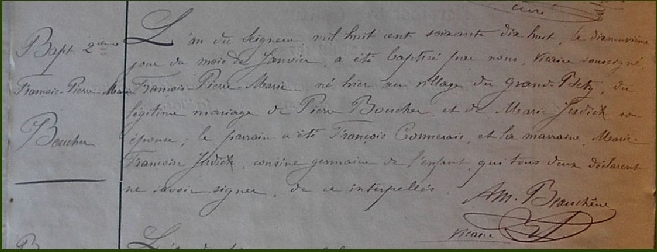 Bapt 2ème
François-Pierre-Marie
Boucher
L'an du Seigneur mil huit cent soixante dix huit, le dixneuvième
jour du mois de Janvier, a été baptisé par nous, vicaire soussigné
François Pierre Marie né hier au village du Grand du
légitime mariage de Pierre Boucher et de Marie son
épouse; le parrain a été François et la marraine, Marie
Françoise cousine germaine de l'enfant, qui tous deux déclarent
ne savoir signer, de ce interpellés.
Am. Beauchêne
vicaire